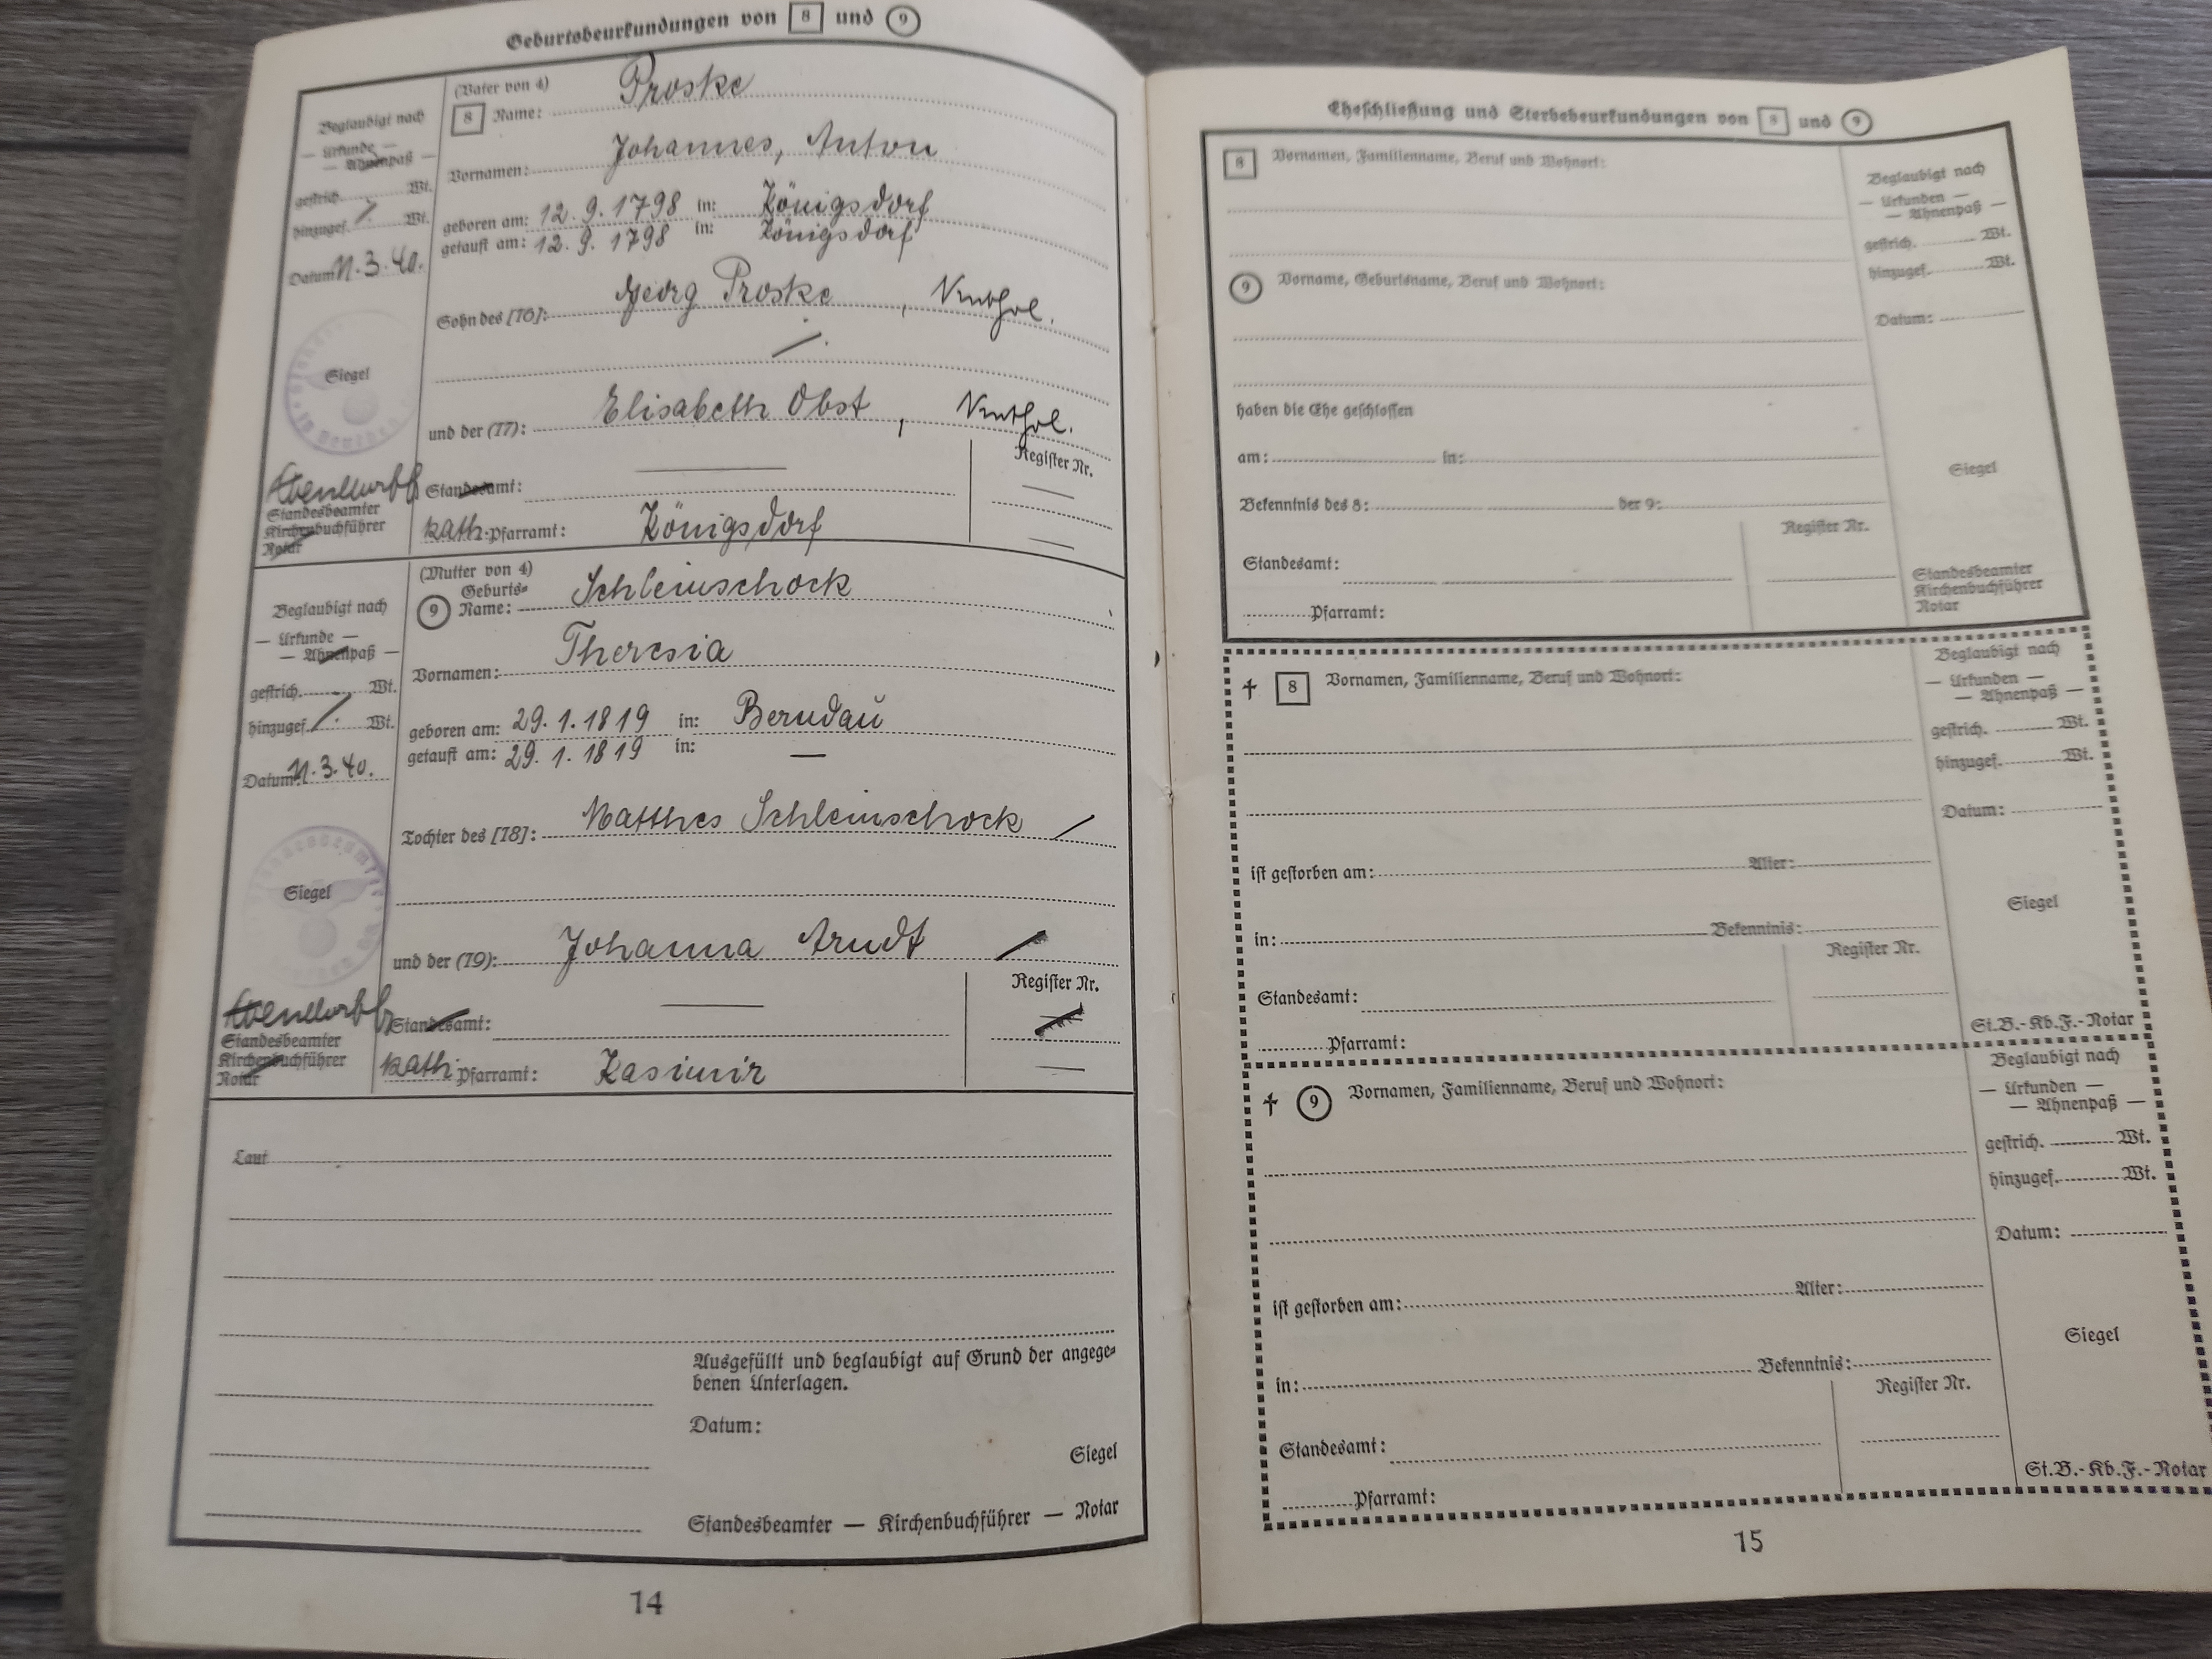 Geburtsbeurkundungen von 8 und 9
Beglaubigt nach
— Urkunde —
— Ahnenpaß —
gestrich. Wt.
hinzugef. /. Wt.
Datum 11.3.40.
Siegel
Standesbeamter
Kirchenbuchführer
Notar
(Vater von 4)
8 Name: Proske
Vornamen: Johannes, Anton
geboren am: 12.9.1798 in: Königsdorf
getauft am: 12.9.1798 in: Königsdorf
Sohn des [16]: Georg Proske, kathol.
/.
und der (17): Elisabeth Obst, kathol.
Register Nr.
Standesamt: —
kath. Pfarramt: Königsdorf —
Beglaubigt nach
— Urkunde —
— Ahnenpaß —
gestrich. Wt.
hinzugef. /. Wt.
Datum: 11.3.40.
Siegel
Standesbeamter
Kirchenbuchführer
Notar
(Mutter von 4)
Geburts=
9 Name: Schleinschock
Vornamen: Theresia
geboren am: 29.1.1819 in: Berndau
getauft am: 29.1.1819 in: —
Tochter des [18]: Matthes Schleinschock /
und der (19): Johanna Arndt /
Register Nr.
Standesamt: —
kath. Pfarramt: Kasimir —
Laut
Ausgefüllt und beglaubigt auf Grund der angege=
benen Unterlagen.
Datum:
Siegel
Standesbeamter — Kirchenbuchführer — Notar
14
Eheschließung und Sterbebeurkundungen von 8 und 9
8 Vornamen, Familienname, Beruf und Wohnort:
9 Vorname, Geburtsname, Beruf und Wohnort:
haben die Ehe geschlossen
am: in:
Bekenntnis des 8: der 9:
Register Nr.
Standesamt:
Pfarramt:
Beglaubigt nach
— Urkunden —
— Ahnenpaß —
gestrich. Wt.
hinzugef. Wt.
Datum:
Siegel
Standesbeamter
Kirchenbuchführer
Notar
† 8 Vornamen, Familienname, Beruf und Wohnort:
ist gestorben am: Alter:
in: Bekenntnis:
Register Nr.
Standesamt:
Pfarramt:
Beglaubigt nach
— Urkunden —
— Ahnenpaß —
gestrich. Wt.
hinzugef. Wt.
Datum:
Siegel
St.B.-Kb.F.-Notar
† 9 Vornamen, Familienname, Beruf und Wohnort:
ist gestorben am: Alter:
in: Bekenntnis:
Register Nr.
Standesamt:
Pfarramt:
Beglaubigt nach
— Urkunden —
— Ahnenpaß —
gestrich. Wt.
hinzugef. Wt.
Datum:
Siegel
St.B.-Kb.F.-Notar
15